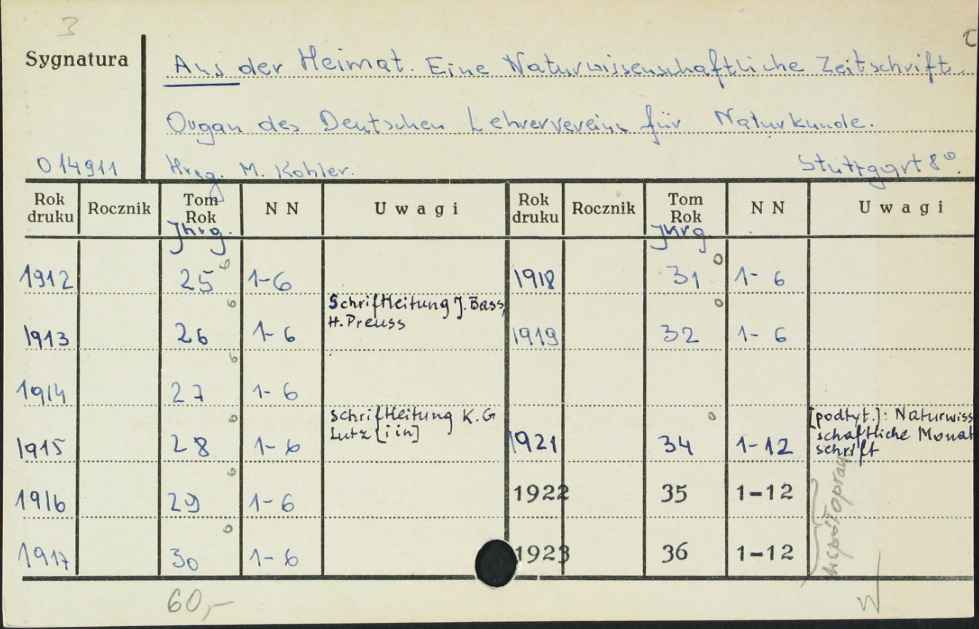 3
Sygnatura
Aus der Heimat. Eine Naturwissenschaftliche Zeitschrift.
Organ des Deutschen Lehrervereins für Naturkunde.
014911 Hrsg. M. Kohler. Stuttgart 8°.
Rok druku Rocznik Tom Rok NN Uwagi Rok druku Rocznik Tom Rok NN Uwagi
Jhrg. Jhrg
1912 25 1-6 1918 31 1-6
Schriftleitung J. Bass,
H. Preuss
1913 26 1-6 1919 32 1-6
1914 27 1-6
Schriftleitung K. G
Lutz [i in]
[podtyt.]: Naturwiss
schaftliche Monat
schrift
1915 28 1-6 1921 34 1-12
1916 29 1-6 1922 35 1-12
1917 30 1-6 1923 36 1-12
współopraw
60,-